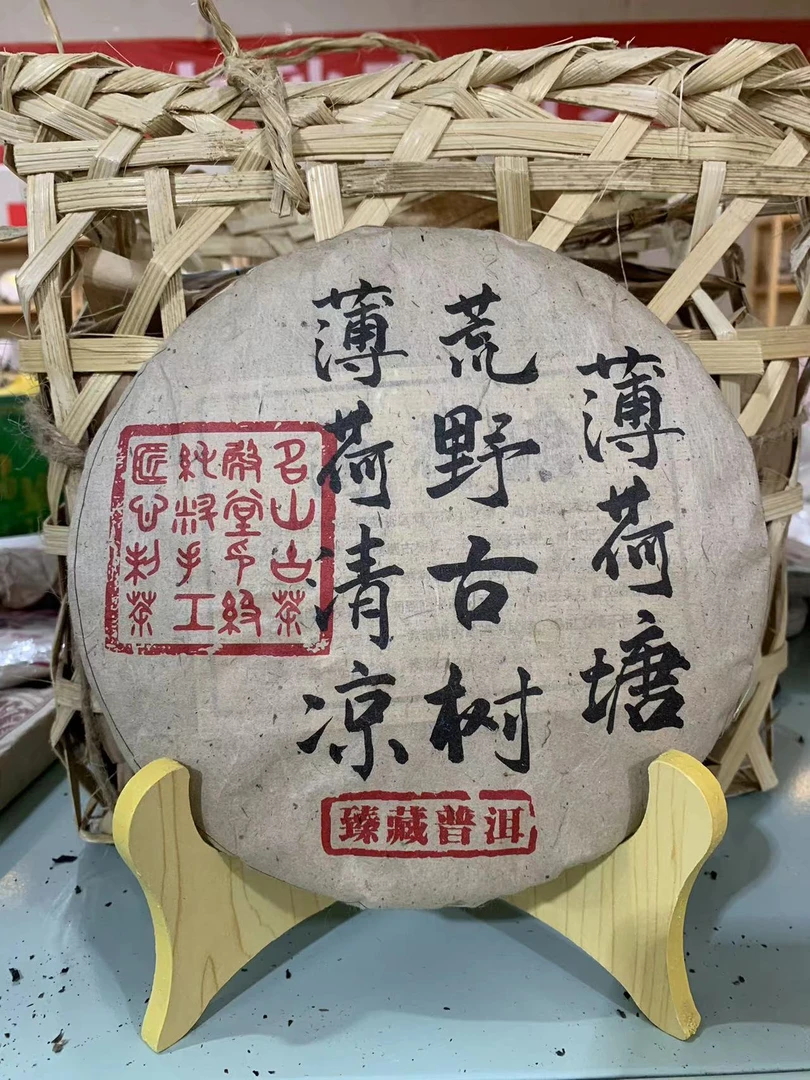 薄荷塘
荒野古树
薄荷清凉
名山古茶
纯将手工
匠心朴茶
臻藏普洱